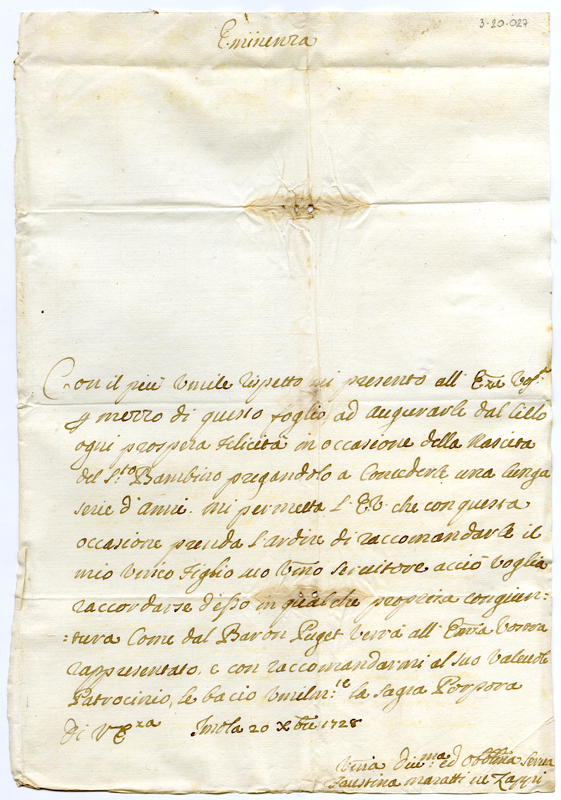 3-20.027
Eminenza
Con il più Umile rispetto mi presento all' Eza Vosª
p mezzo di questo foglio ad augurarle dal Cielo
ogni prospera Felicità in occasione della Nascita
del Sto Bambino pregandolo a Concederle una lunga
serie d'anni. mi permetta l'E.V. che con questa
occasione prenda l'ardire di raccomandarle il
mio Unico Figlio suo Umo Servitore acciò voglia
raccordarse d'esso in qualche propizia congiun=
=tura Come dal Baron Puget verrà all' Emza Vostra
rappresentato, e con raccomandarmi al suo Valevole
Patrocinio, le bacio Umilmte la sagra Porpora
Di VEza Imola 20 Xbre 1728
Faustina Maratti ne Zappi